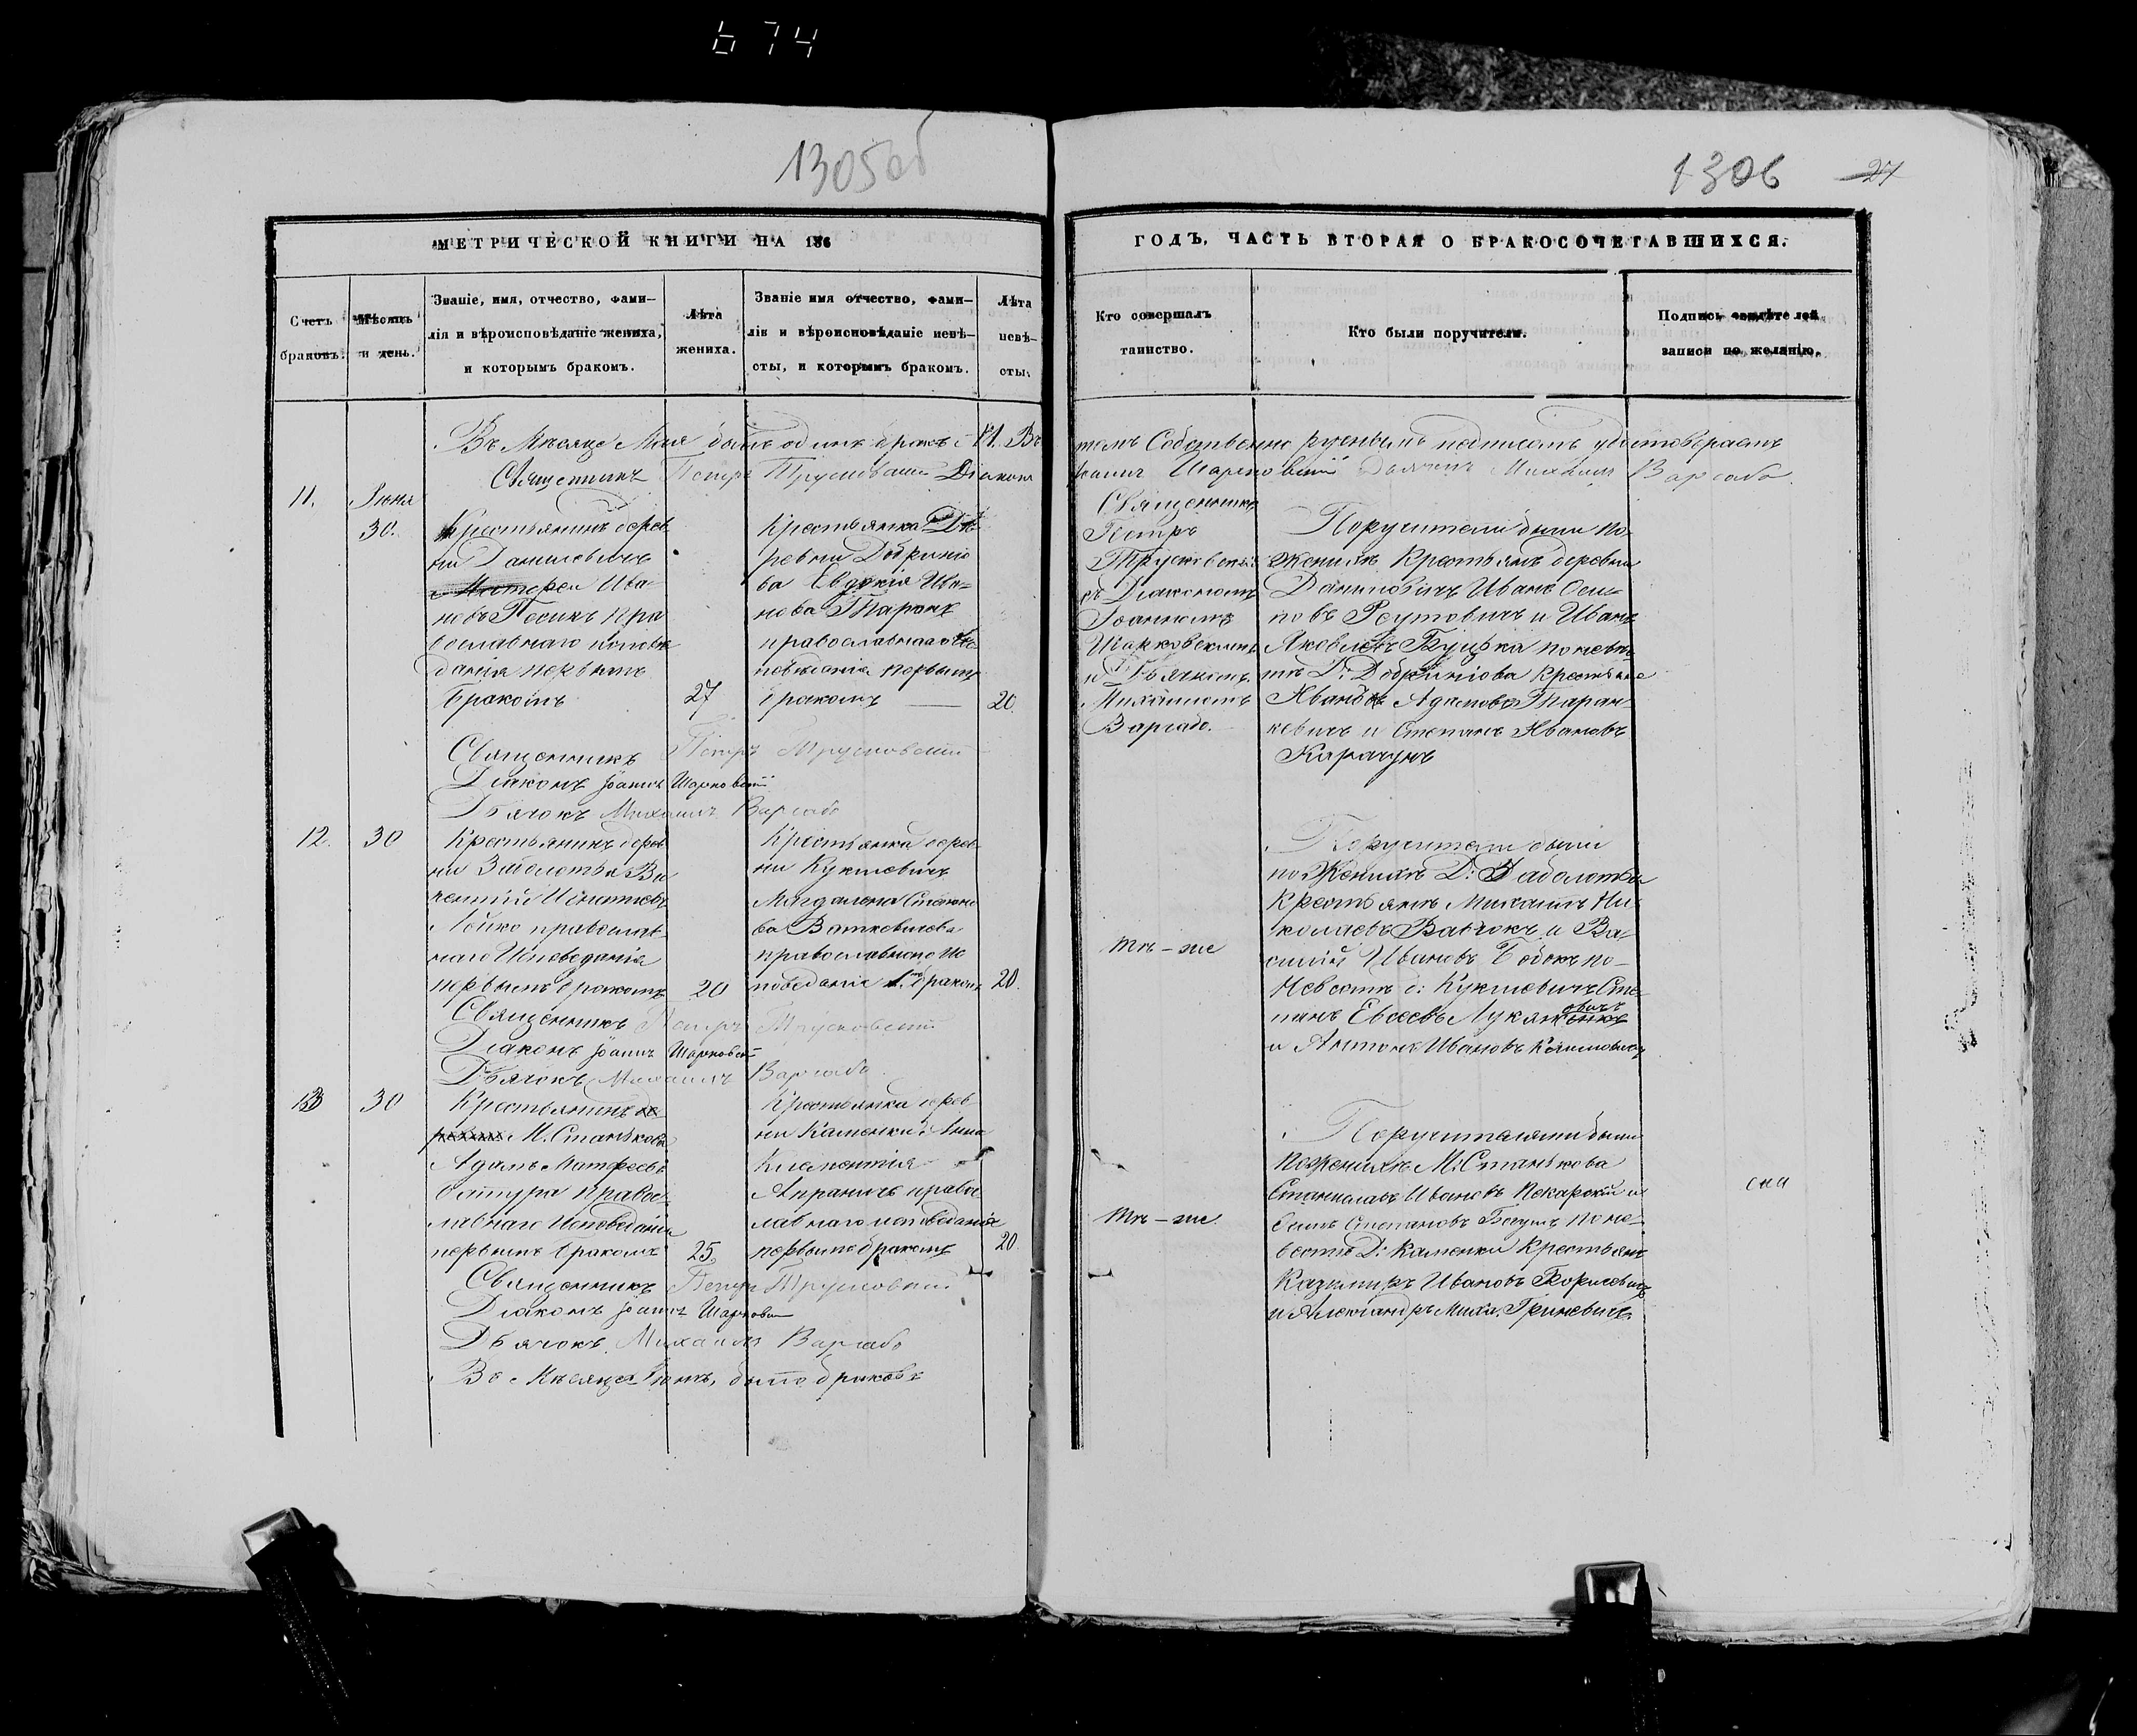 674
1305об
1306 27
МЕТРИЧЕСКОЙ КНИГИ НА 186
ГОДЪ, ЧАСТЬ ВТОРАЯ О БРАКОСОЧЕТАВШИХСЯ.
Счетъ
браковъ.
Мѣсяцъ
и день.
Званіе, имя, отчество, фами-
лія и вѣроисповѣданіе жениха,
и которымъ бракомъ.
Лѣта
жениха.
Званіе имя отчество, фами-
лія и вѣроисповѣданіе невѣ-
сты, и которымъ бракомъ.
Лѣта
невѣ-
сты.
Кто совершалъ
таинство.
Кто были поручители.
Подпись свидѣтелей
записи по желанію.
Въ Мѣсяцѣ Маѣ былъ одинъ бракъ
томъ Собственно ручнымъ подписомъ удостоверяемъ
Священникъ Петръ Трусковскій Діаконъ
Іоаннъ Шарковскій Дьячекъ Михаилъ Варгабо
11.
Іюня
30.
Крестьянинъ дерев
ни Даниловичъ
Ива-
новъ Песикъ пра
вославнаго исповѣ
данія первымъ
бракомъ
27
Крестьянка Де
ревни Добринё
ва Евдокія Ива-
нова Таран
православнаго Ис
повѣданія первымъ
бракомъ
20.
Священникъ
Петръ
Трусковскій
съ Діакономъ
Іоанномъ
Шарковскимъ
и Дьячкомъ
Михаиломъ
Варгабо.
Поручители были по
Женихѣ Крестьяне деревни
Даниловичъ Иванъ Оси-
повъ Реутовичъ и Иванъ
Яковлевъ Буцька по невѣ-
стѣ Д: Добринёва Крестьяне
Иванъ Адамовъ Таран-
кевичъ и Степанъ Ивановъ
Карачунъ
Священникъ Петръ Трусковскій
Діаконъ Іоаннъ Шарковскій
Дьячокъ Михаилъ Варгабо
12.
30
Крестьянинъ дерев
ни Заболотья Ви
кентій Игнатіевъ
Лойко православ-
наго Исповеданія
первымъ бракомъ
20
Крестьянка дерев-
ни Кукшевичъ
Магдалена Степано
ва Ваткевичева
православнаго Ис
поведанія 1мъ бракомъ
20.
тѣ-же
Поручители были
по Женихѣ Д: Заболотья
Крестьяне Михаилъ Ни
колаевъ Вавчокъ и Ва-
силій Ивановъ Бобокъ по-
Невестѣ д: Кукшевичъ Сте-
панъ Евсеевъ
и Антонъ Ивановъ
Священникъ Петръ Трусковскій
Діаконъ Іоаннъ Шарковскій
Дьячокъ Михаилъ Варгабо.
13
30
Крестьянинъ
М. Станькова
Адамъ Матфеевъ
правос-
лавнаго Исповеданія
первымъ бракомъ
25.
Крестьянка дерев-
ни Каменки Анна
Климентія
правос-
лавнаго исповеданія
первымъ бракомъ
20
тѣ-же.
Поручителями были
по Женихѣ М: Станькова
Станиславъ Ивановъ Пекарскій и
Степановъ по не-
вестѣ Д: Каменки Крестьяне
Казимиръ Ивановъ
и Александръ Миха. Гриневичъ
Священникъ Петръ Трусковскій
Діаконъ Іоаннъ Шарковскій
Дьячокъ Михаилъ Варгабо
Въ Мѣсяцѣ Іюнѣ, было браковъ